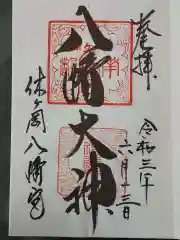 奉拝
八幡大神
休ヶ岡八幡宮
令和三年
六月十三日